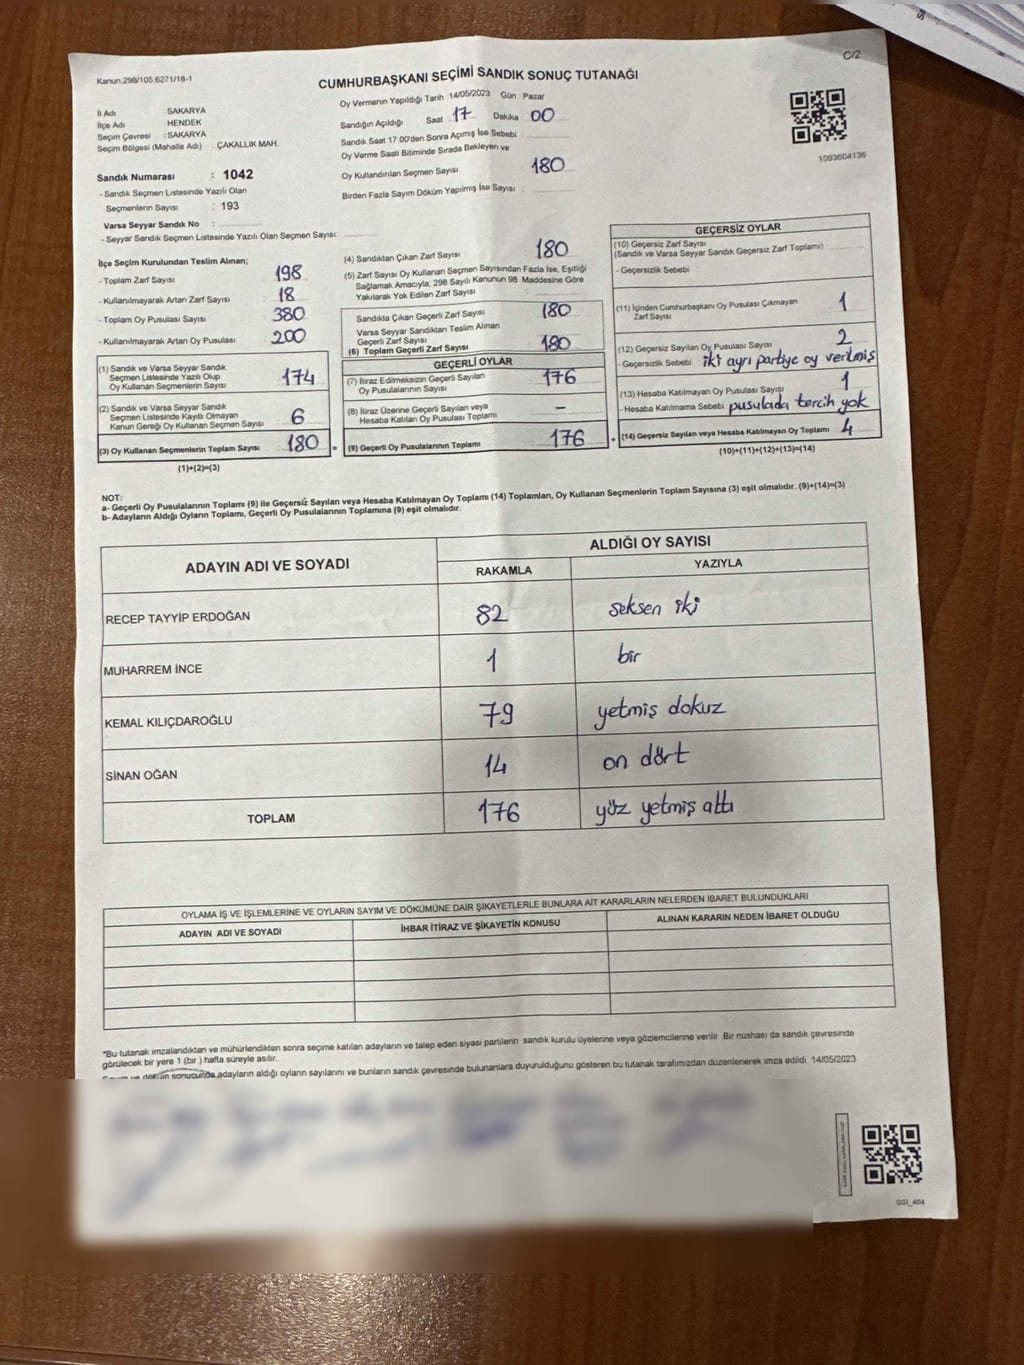 C/2
Kanun:298/105.6271/18-1
CUMHURBAŞKANI SEÇİMİ SANDIK SONUÇ TUTANAĞI
İl Adı : SAKARYA
İlçe Adı : HENDEK
Seçim Çevresi : SAKARYA
Seçim Bölgesi (Mahalle Adı) : ÇAKALLIK MAH.
Sandık Numarası : 1042
- Sandık Seçmen Listesinde Yazılı Olan
Seçmenlerin Sayısı : 193
Varsa Seyyar Sandık No :
- Seyyar Sandık Seçmen Listesinde Yazılı Olan Seçmen Sayısı:
Oy Vermenin Yapıldığı Tarih :14/05/2023 Gün : Pazar
Sandığın Açıldığı Saat 17 Dakika 00
Sandık Saat 17:00'den Sonra Açımış İse Sebebi :
Oy Verme Saati Bitiminde Sırada Bekleyen ve
Oy Kullandırılan Seçmen Sayısı : 180
Birden Fazla Sayım Döküm Yapılmış İse Sayısı :
1093604136
İlçe Seçim Kurulundan Teslim Alınan;
- Toplam Zarf Sayısı : 198
- Kullanılmayarak Artan Zarf Sayısı : 18
- Toplam Oy Pusulası Sayısı : 380
- Kullanılmayarak Artan Oy Pusulası : 200
(1) Sandık ve Varsa Seyyar Sandık
Seçmen Listesinde Yazılı Olup
Oy Kullanan Seçmenlerin Sayısı 174
(2) Sandık ve Varsa Seyyar Sandık
Seçmen Listesinde Kayıtlı Olmayan
Kanun Gereği Oy Kullanan Seçmen Sayısı 6
(3) Oy Kullanan Seçmenlerin Toplam Sayısı 180 =
(1)+(2)=(3)
(4) Sandıktan Çıkan Zarf Sayısı 180
(5) Zarf Sayısı Oy Kullanan Seçmen Sayısından Fazla İse, Eşitliği
Sağlamak Amacıyla; 298 Sayılı Kanunun 98. Maddesine Göre
Yakılarak Yok Edilen Zarf Sayısı :
Sandıkta Çıkan Geçerli Zarf Sayısı 180
Varsa Seyyar Sandıktan Teslim Alınan
Geçerli Zarf Sayısı
(6) Toplam Geçerli Zarf Sayısı 180
GEÇERLİ OYLAR
(7) İtiraz Edilmeksizin Geçerli Sayılan
Oy Pusulalarının Sayısı 176
(8) İtiraz Üzerine Geçerli Sayılan veya
Hesaba Katılan Oy Pusulası Toplamı –
(9) Geçerli Oy Pusulalarının Toplamı 176 +
GEÇERSİZ OYLAR
(10) Geçersiz Zarf Sayısı
(Sandık ve Varsa Seyyar Sandık Geçersiz Zarf Toplamı)
- Geçersizlik Sebebi
(11) İçinden Cumhurbaşkanı Oy Pusulası Çıkmayan
Zarf Sayısı 1
(12) Geçersiz Sayılan Oy Pusulası Sayısı 2
- Geçersizlik Sebebi iki ayrı partiye oy verilmiş
(13) Hesaba Katılmayan Oy Pusulası Sayısı 1
- Hesaba Katılmama Sebebi pusulada tercih yok
(14) Geçersiz Sayılan veya Hesaba Katılmayan Oy Toplamı 4
(10)+(11)+(12)+(13)=(14)
NOT:
a- Geçerli Oy Pusulalarının Toplamı (9) ile Geçersiz Sayılan veya Hesaba Katılmayan Oy Toplamı (14) Toplamları, Oy Kullanan Seçmenlerin Toplam Sayısına (3) eşit olmalıdır. (9)+(14)=(3)
b- Adayların Aldığı Oyların Toplamı, Geçerli Oy Pusulalarının Toplamına (9) eşit olmalıdır.
ADAYIN ADI VE SOYADI
ALDIĞI OY SAYISI
RAKAMLA YAZIYLA
RECEP TAYYİP ERDOĞAN 82 seksen iki
MUHARREM İNCE 1 bir
KEMAL KILIÇDAROĞLU 79 yetmiş dokuz
SİNAN OĞAN 14 on dört
TOPLAM 176 yüz yetmiş altı
OYLAMA İŞ VE İŞLEMLERİNE VE OYLARIN SAYIM VE DÖKÜMÜNE DAİR ŞİKAYETLERLE BUNLARA AİT KARARLARIN NELERDEN İBARET BULUNDUKLARI
ADAYIN ADI VE SOYADI İHBAR İTİRAZ VE ŞİKAYETİN KONUSU ALINAN KARARIN NEDEN İBARET OLDUĞU
*Bu tutanak imzalandıktan ve mühürlendikten sonra seçime katılan adayların ve talep eden siyasi partilerin sandık kurulu üyelerine veya gözlemcilerine verilir. Bir nüshası da sandık çevresinde
görülecek bir yere 1 (bir ) hafta süreyle asılır.
Sayım ve döküm sonucunda adayların aldığı oyların sayılarını ve bunların sandık çevresinde bulunanlara duyurulduğunu gösteren bu tutanak tarafımızdan düzenlenerek imza edildi. 14/05/2023
SGİ_404